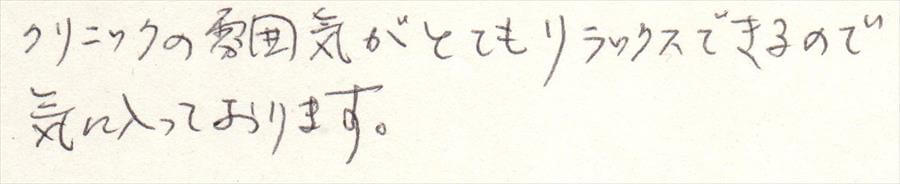 クリニックの雰囲気がとてもリラックスできるので
気に入っております。